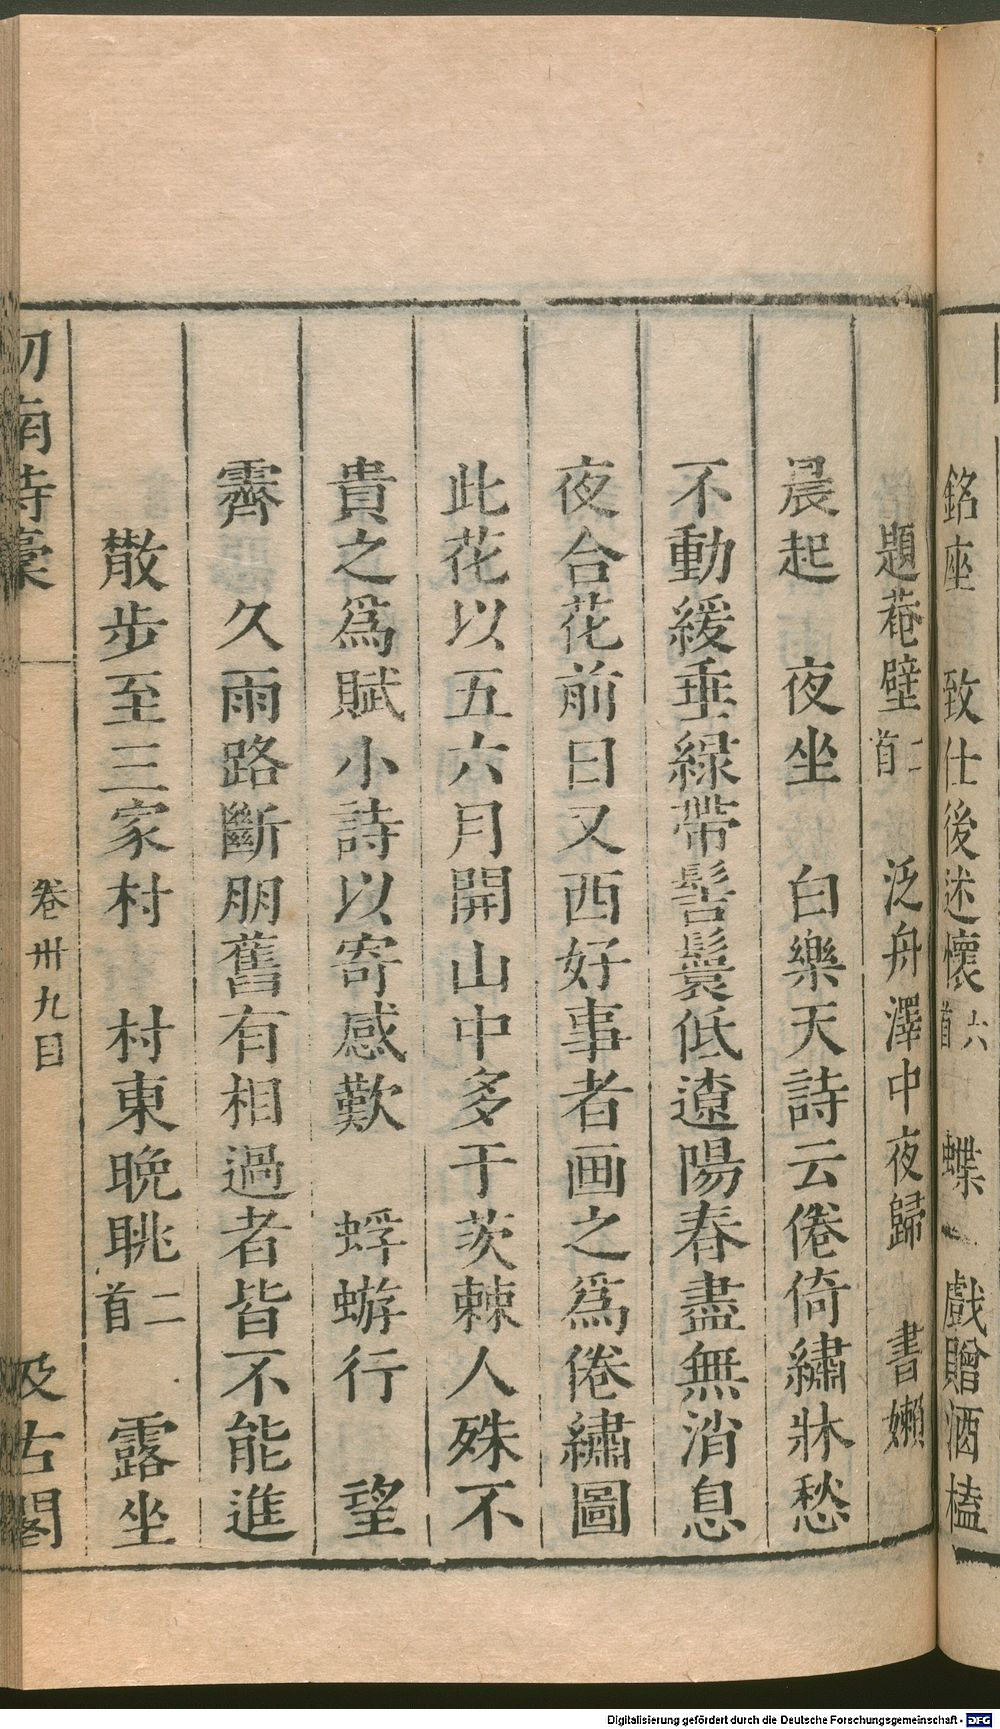 銘座 致仕後述懷六首 蝶 戲贈酒榼
題菴壁二首 泛舟澤中夜歸 書嬾
晨起 夜坐 白樂天詩云倦倚繡牀愁
不動緩垂綠帶髻鬟低遼陽春盡無消息
夜合花前日又西好事者画之爲倦繡圖
此花以五六月開山中多于茨棘人殊不
貴之爲賦小詩以寄感歎 蜉蝣行 望
霽 久雨路斷朋舊有相過者皆不能進
散步至三家村 村東晚眺二首 露坐
劒南詩藳 卷卅九目 汲古閣
Digitalisierung gefördert durch die Deutsche Forschungsgemeinschaft - DFG